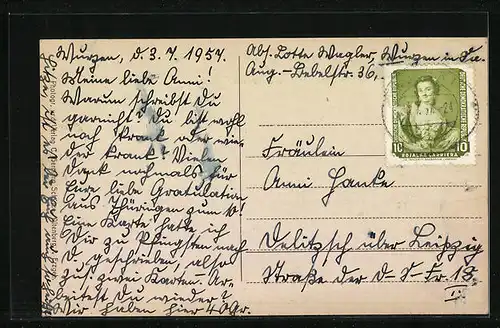 Wurzen, d. 3. 7. 1957.
Meine liebe Anni!
Warum schreibst Du
garnicht? Du bist wohl
noch krank oder wie-
der krank? Vielen
Dank nochmals für
Eure liebe Gratulation
aus Thüringen zum 10!
Eine Karte hatte ich
Dir zu Pfingsten nach
D. geschrieben, also
zus. zwei Karten. Ar-
beitest Du wieder?
Wir haben hier 40 Gr.
Abs. Lotte Wagler, Wurzen in Sa.
Aug.-Bebelstr. 36,
10 ROSALBA CARRIERA 10
Fräulein
Anni Hanke
Delitzsch über Leipzig
Straße der d-S-Fr. 18